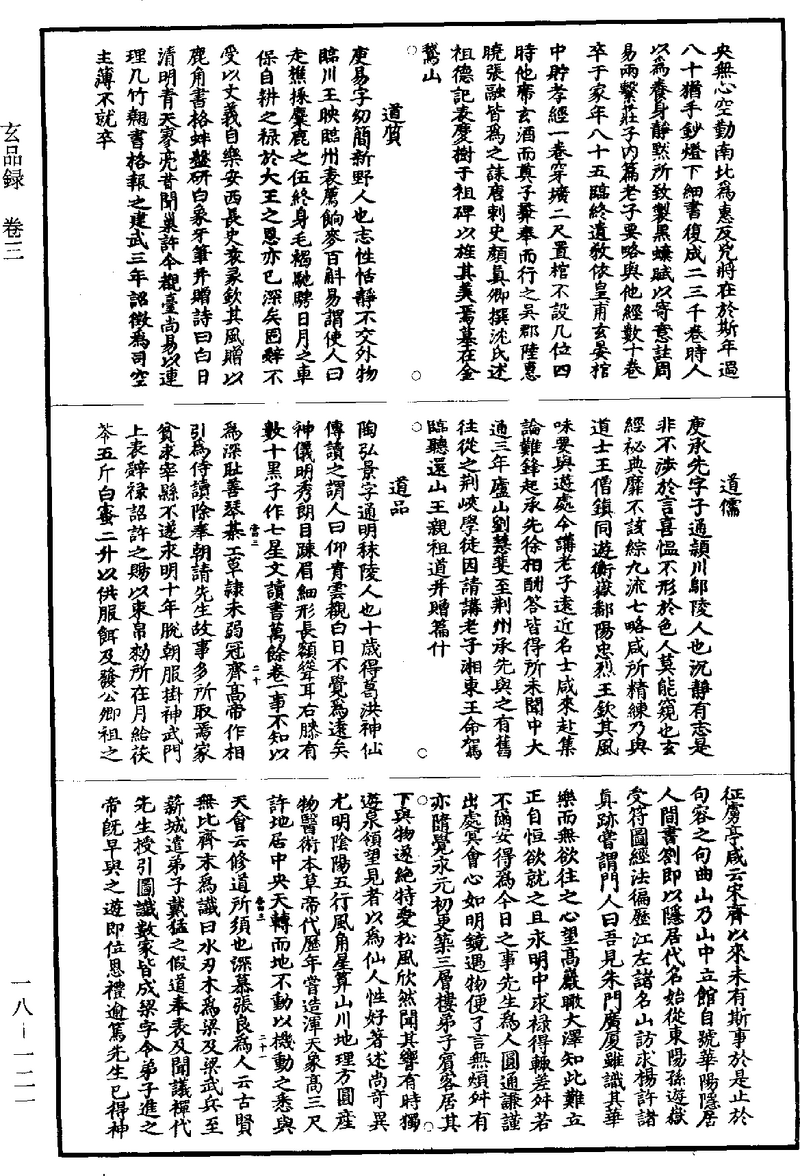 央無心空勤南北為惠反凶將在於斯年過
八十猶手鈔燈下細書復成二三千卷時人
以為養身靜黙所致製黑蠂賦以寄意註周
易兩繫莊子内篇老子要略與他經數十卷
卒于家年八十五臨終遺教依皇甫玄晏棺
中貯孝經一卷穿壙二尺置棺不設几位四
時他席玄酒而奠子彝奉而行之吳郡陸惠
曉張融皆為之誄唐刺史顏真卿撰沈氏述
祖德記表慶樹于祖碑以旌其美焉墓在金
鵞山
道質
庚易字幼簡新野人也志性恬靜不交外物
臨川王映臨州表薦餉麥百斛易謂使人曰
走樵採麋鹿之伍終身毛褐馳騁日月之車
保自耕之禄於大王之恩亦已深矣固辭不
受以文義自樂安西長史袁彖欽其風贈以
鹿角書格蚌盤研白象牙筆并贈詩曰白日
清明青天寥亮昔聞巢許今觀臺尚易以連
理几竹翹書格報之建武三年詔徵為司空
主薄不就卒
道儒
庚承先字子通頴川鄢陵人也沉靜有志是
非不渉於言喜愠不形於色人莫能窺也玄
經祕典靡不該綜九流七略咸所精練乃與
道士王僧鎮同遊衡嶽鄱陽忠烈王欽其風
味要與遊處令講老子遠近名士咸來赴集
論難鋒起承先徐相酬答皆得所未聞中大
通三年廬山劉慧斐至荆州承先與之有舊
往從之荆峽學徒因請講老子湘東王命駕
臨聽還山王親祖道并贈篇什
道品
陶弘景字通明秣陵人也十歲得葛洪神仙
傳讀之謂人曰仰青雲觀白日不覺為遠矣
神儀明秀朗目踈眉細形長額聳耳右膝有
數十黑子作七星文讀書萬餘卷一事不知以
為深耻善琴棊工草隷未弱冠齊高帝作相
引為侍讀除奉朝請先生故事多所取焉家
貧求宰縣不遂永明十年脫朝服掛神武門
上表辭禄詔許之賜以束帛勑所在月給茯
苓五斤白蜜二升以供服餌及發公卿祖之
征虜亭咸云宋齊以來未有斯事於是止於
句容之句曲山乃山中立館自號華陽隱居
人間書劄即以隱居代名始從東陽孫遊嶽
受符圖經法徧歷江左諸名山訪求楊許諸
真跡嘗謂門人曰吾見朱門廣厦雖識其華
樂而無欲往之心望高巖瞰大澤知此難立
正自恒欲就之且永明中求禄得輒差舛若
不爾安得為今日之事先生為人圓通謙謹
出處冥會心如明鏡遇物便了言無煩舛有
亦隨覺永元初更築三層樓弟子賓客居其
下與物遂絶特愛松風欣然聞其響有時獨
遊泉領望見者以為仙人性好著述尚奇異
尤明陰陽五行風角星算山川地理方圓産
物醫術本草帝代歷年嘗造渾天象高三尺
許地居中央天轉而地不動以機動之悉與
天會云修道所須也深慕張良為人云古賢
無比齊末為讖曰水刃木為梁及梁武兵至
新城遣弟子戴猛之假道奉表及聞議禪代
先生授引圖讖數家皆成梁字令弟子進之
帝旣早與之遊即位恩禮逾篤先生已得神
玄品録 卷三
一八—一二一